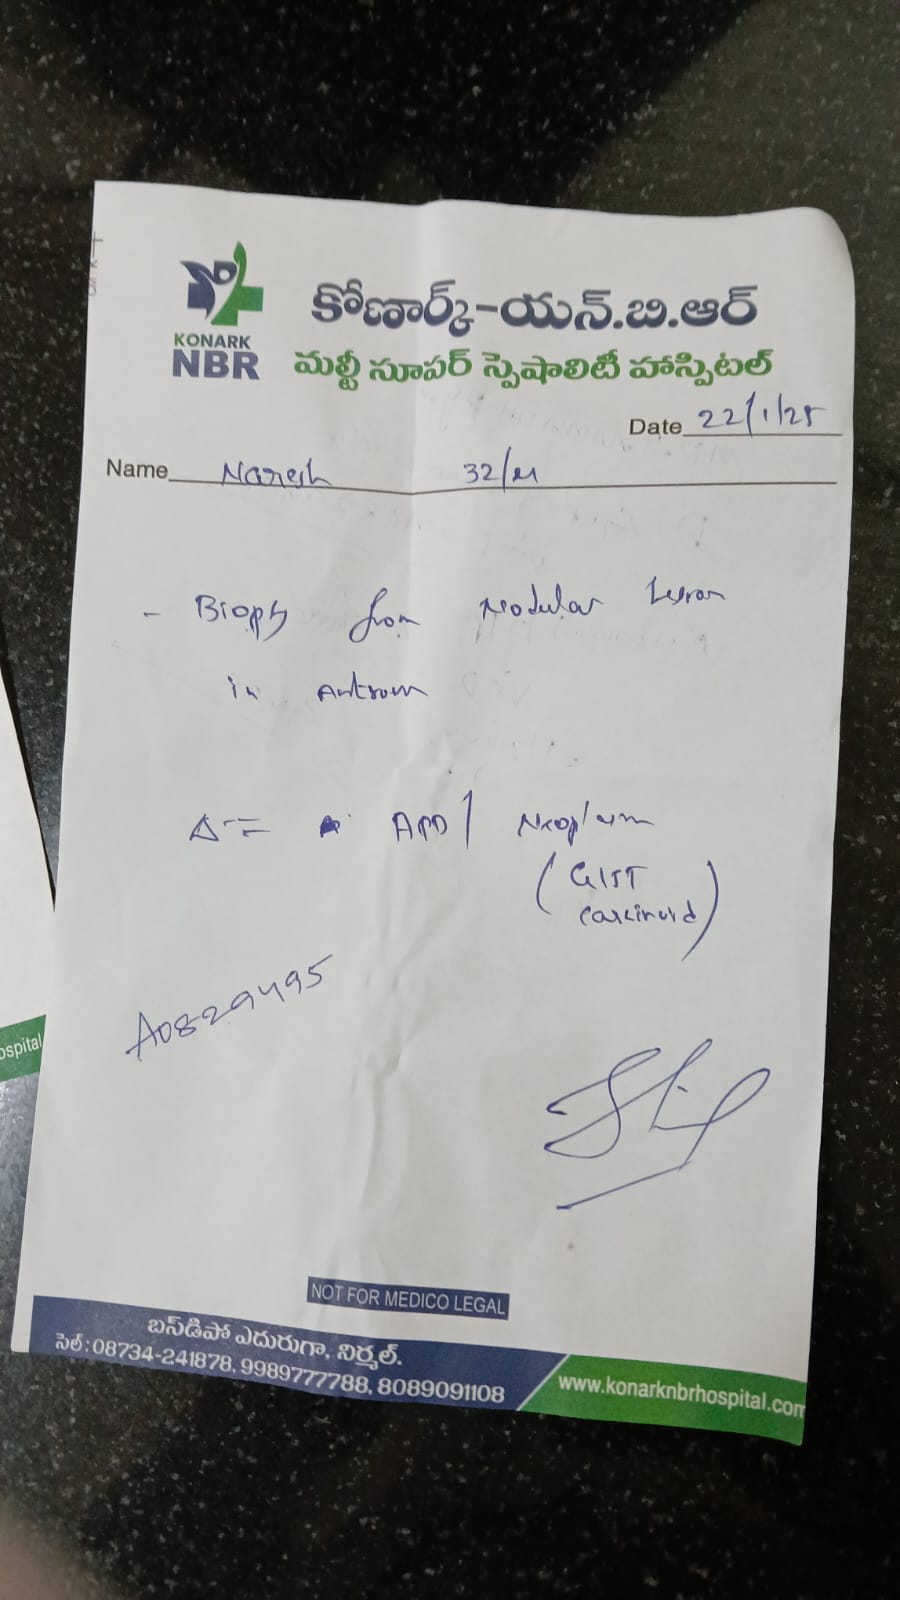 KONARK
NBR
కోణార్క్-యన్.బి.ఆర్
మల్టీ సూపర్ స్పెషాలిటీ హాస్పిటల్
Date 22/1/25
Name Naresh 32/M
- Biopsy from Nodular Lesion
in Antrum
Δ -= / Neoplasm
(GIST
carcinoid)
A0829495
NOT FOR MEDICO LEGAL
బస్‌డిపో ఎదురుగా, నిర్మల్.
సెల్: 08734-241878, 9989777788, 8089091108
www.konarknbrhospital.com
ospital